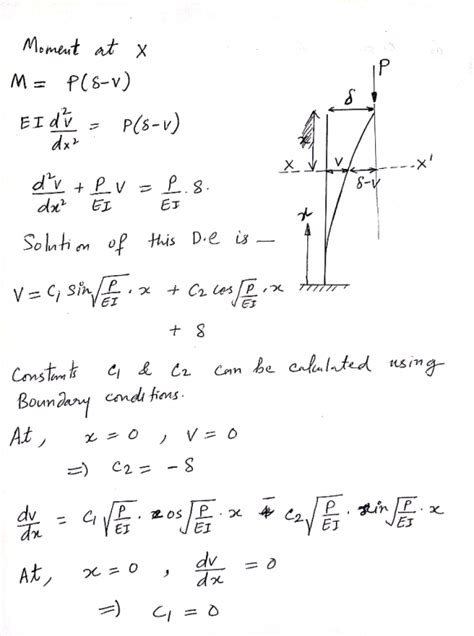 Moment at X
M = P(δ-v)
EI d²v/dx² = P(δ-v)
d²v/dx² + P/EI v = P/EI . δ.
Solution of this D.e is —
V = C₁ sin√(P/EI) . x + C₂ cos√(P/EI) . x
+ δ
Constants C₁ & C₂ can be calculated using
Boundary conditions.
At, x = 0 , V = 0
=) C₂ = -δ
dv/dx = C₁ √(P/EI) . cos√(P/EI) . x - C₂ √(P/EI) . sin√(P/EI) . x
At, x = 0 , dv/dx = 0
=) C₁ = 0
P
δ
X
v
X'
δ-v
x